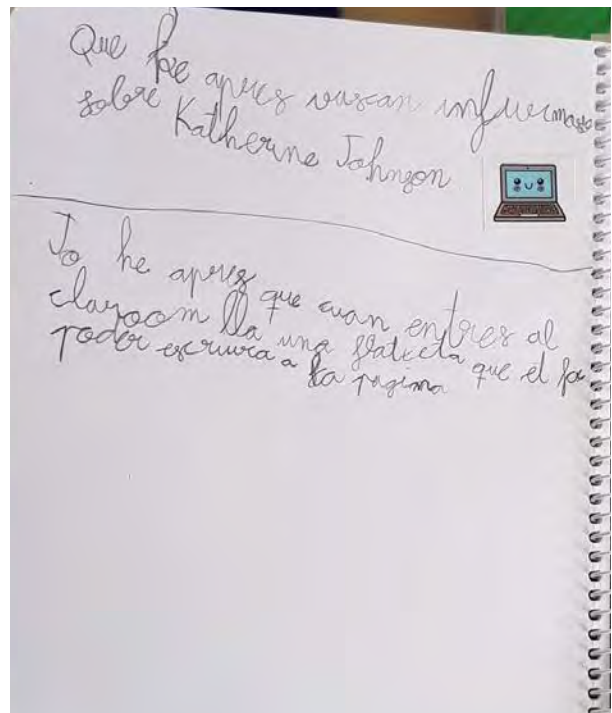 Que he apres vuscan infurmasio
sobre Katherine Johnson
Jo he apres que cuan entres al
clasroom lla una flatxeta que et fa
poder escriura a la pagina